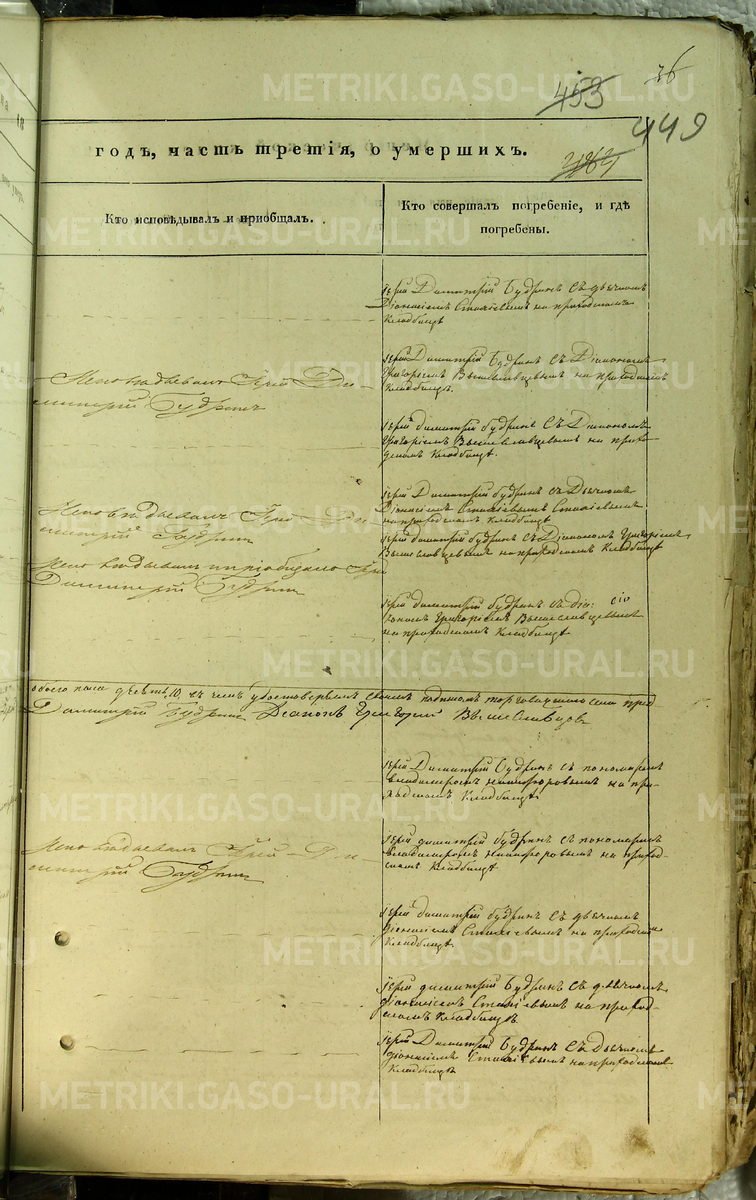 36
453
449
годъ, часть третія, о умершихъ.
Кто исповѣдывалъ и приобщалъ.
Кто совершалъ погребеніе, и гдѣ
погребены.
Іерей Димитрій Будринъ съ дьячкомъ
на приходскомъ
кладбищѣ
Исповѣдывалъ Іерей Ди-
митрій Будринъ
Іерей Димитрій Будринъ съ Діакономъ
Григорьемъ Вышеславцевымъ на приходскомъ
кладбищѣ.
Іерей димитрій будринъ съ Діакономъ
Григоріемъ Вышеславцевымъ на прихо-
дскомъ кладбищѣ.
Исповѣдывалъ Іерей Ди-
митрій Будринъ
Іерей Димитрій будринъ съ Дьячкомъ
на приходскомъ кладбищѣ
Исповѣдывалъ и приобщалъ Іерей
Димитрій Будринъ
Іерей димитрій будринъ съ Діакономъ Григоріемъ
Вышеславцевымъ на приходскомъ кладбищѣ
Іерей димитрій будринъ съ діа-
кономъ Григоріемъ Вышеславцевымъ
на приходскомъ кладбищѣ
обоего пола 10, въ чемъ удостовѣряемъ своимъ подписомъ
Димитрій Будринъ Діаконъ Григорій Вышеславцовъ
Іерей Димитрій будринъ съ пономаремъ
Владимиромъ на при-
ходскомъ кладбищѣ.
Исповѣдывалъ Іерей Ди-
митрій Будринъ
Іерей димитрій будринъ съ пономаремъ
Владимиромъ на приход-
скомъ кладбищѣ
Іерей димитрій будринъ съ дьячкомъ
на приходскомъ
кладбищѣ.
Іерей димитрій Будринъ съ дьячкомъ
на приход-
скомъ кладбищѣ
Іерей Димитрій Будринъ съ Дьячкомъ
на приходскомъ
кладбищѣ
METRIKI.GASO-URAL.RU